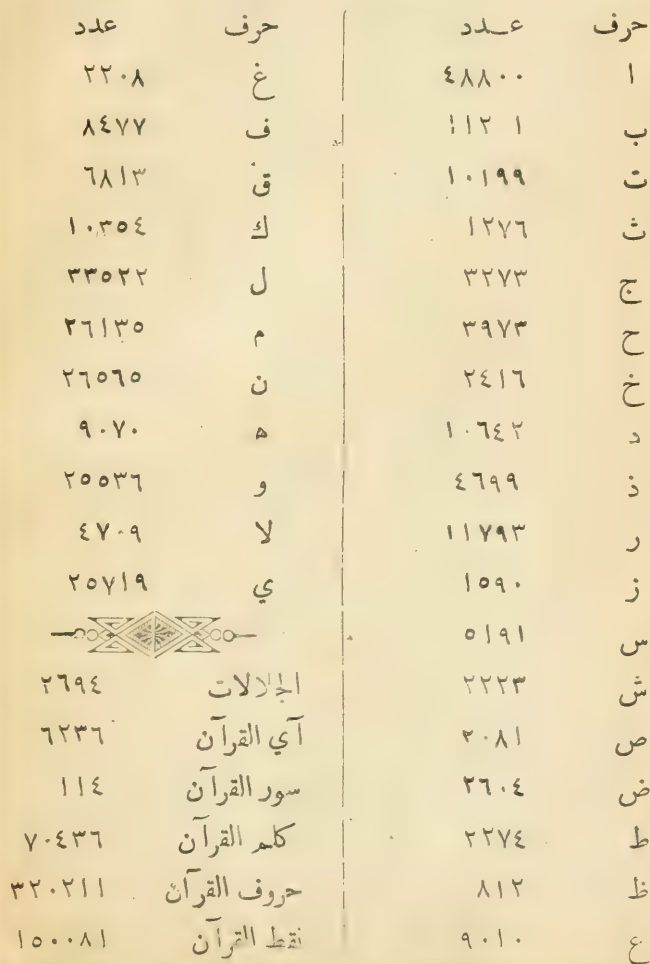 حرف عـدد
ا ٤٨٨٠٠
ب
ت ١٠١٩٩
ث ١٢٧٦
ج ٣٢٧٣
ح ٣٩٧٣
خ ٢٤١٦
د ١٠٦٤٢
ذ ٤٦٩٩
ر ١١٧٩٣
ز ١٥٩٠
س ٥١٩١
ش ٢٢٢٣
ص ٢٠٨١
ض ٢٦٠٤
ط ٢٢٧٤
ظ ٨١٢
ع ٩٠١٠
حرف عدد
غ ٢٢٠٨
ف ٨٤٧٧
ق ٦٨١٣
ك ١٠٣٥٤
ل ٣٣٥٢٢
م ٢٦١٣٥
ن ٢٦٥٦٥
ه ٩٠٧٠
و ٢٥٥٣٦
لا ٤٧٠٩
ي ٢٥٧١٩
الجلالات ٢٦٩٤
آي القرآن ٦٢٣٦
سور القرآن ١١٤
كلم القرآن ٧٠٤٣٦
حروف القرآن ٣٢٠٢١١
نقط القرآن ١٥٠٠٨١